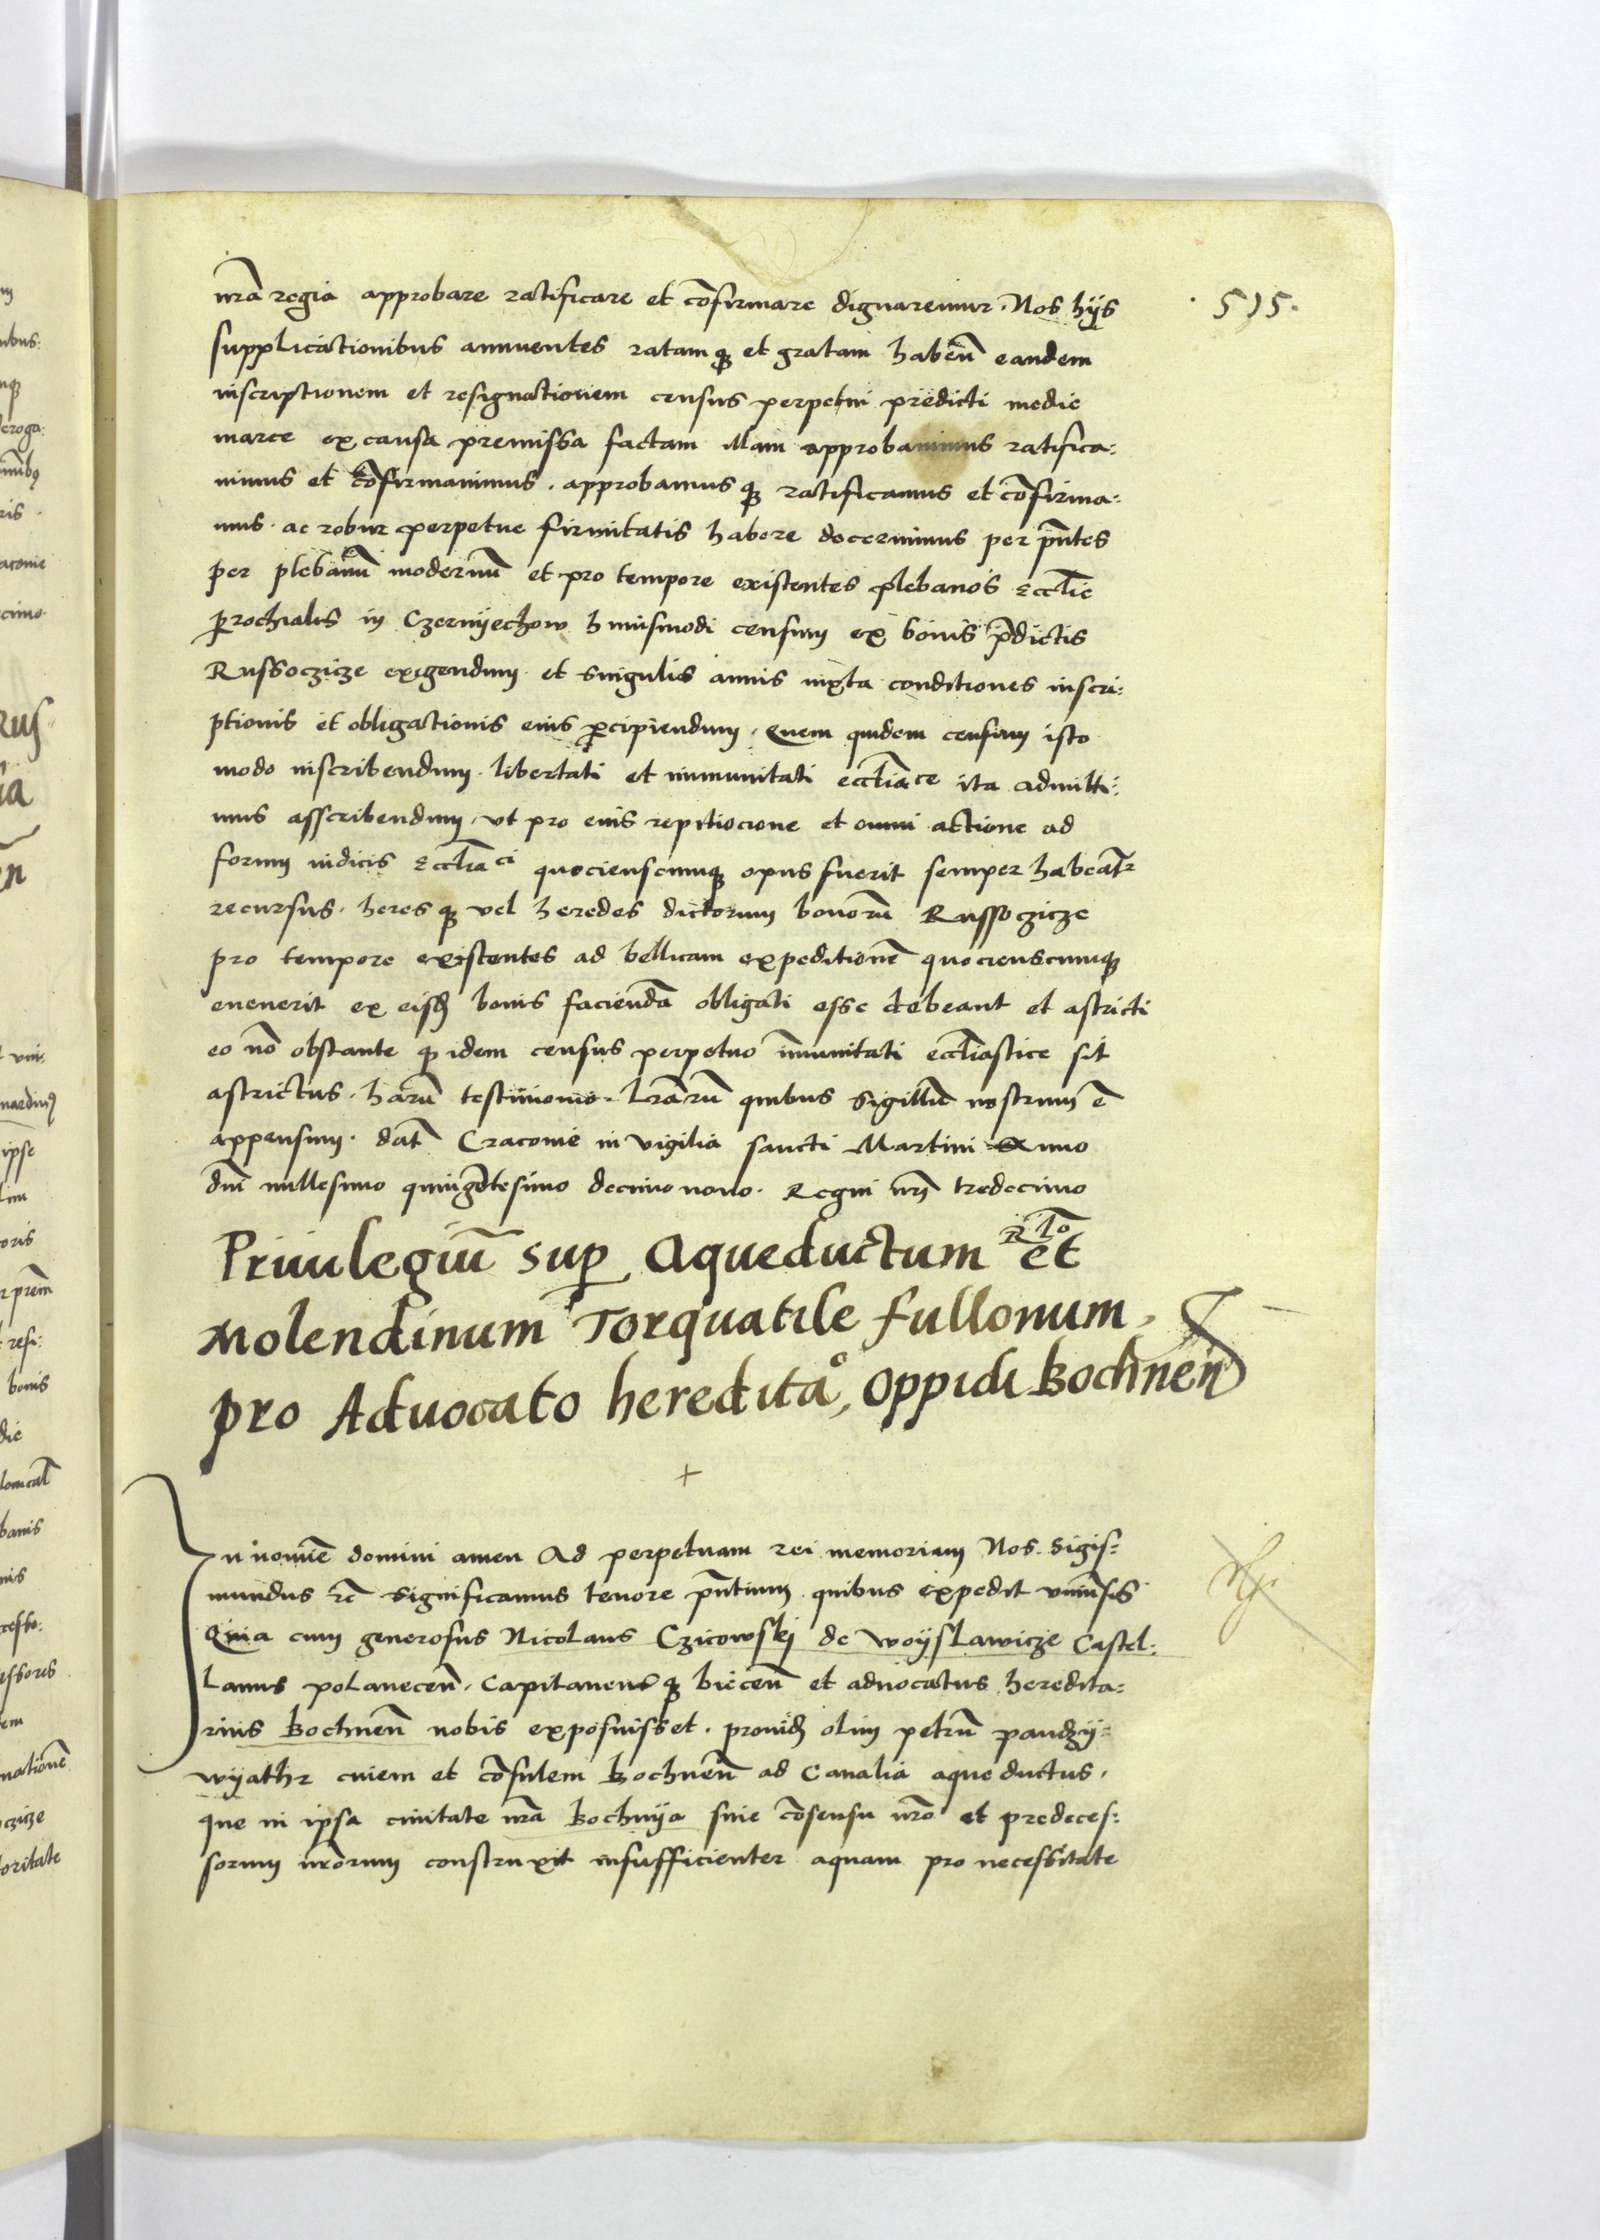 nrã regia approbare ratificare et cõfirmare dignaremur. Nos hijs
515.
supplicationibus annuentes ratamq; et gratam habeñ eandem
inscriptionem et resignationem census perpetui predicti medie
marce ex causa premissa factam illam approbavimus ratifica:
vimus et cõfirmavimus. approbamusq; ratificamus et cõfirma:
mus. ac robur perpetue firmitatis habere decernimus per pñtes
per plebanũ modernũ et pro tempore existentes plebanos Ecclie
prochialis in Czernyechow huiusmodi censum ex bonis p̃dictis
Russoczicze exigendum et singulis annis iuxta conditiones inscri:
ptionis et obligationis eius percipiendum. Quem quidem censum isto
modo inscribendum. libertati et immunitati eccliace ita admitti:
mus asscribendum, vt pro eius repeticione et omni actione ad
forum iudicis Eccliaci quocienscumq; opus fuerit semper habeatr
recursus. heresq; vel heredes dictorum bonorũ Russoczicze
pro tempore existentes ad bellicam expeditionẽ quocienscumq;
evenerit ex eisd bonis faciendã obligati esse debeant et astricti
eo nõ obstante q idem census perpetuo immunitati eccliastice sit
astrictus. harũ testimonio. lrarũ quibus sigillũ nostrum ẽ
appensum. dat Cracovie in vigilia sancti Martini Anno
dñi millesimo quingẽtesimo decimo nono. Regni nri tredecimo
Rlo
Priuilegiũ sup Aqueductum et
Molendinum Torquatile fullonum,
pro Aduocato heredita°, oppidi Bochnen
In nomie domini amen Ad perpetuam rei memoriam Nos. Sigis:
mundus rc̃ significamus tenore pñtium quibus expedit vniuersis
Quia cum generosus Nicolaus Czicowskj de Woyslawicze Castel:
lanus polanecen̄. Capitaneusq; biecen̄ et aduocatus heredita:
rius Bochnen̄ nobis exposuisset. providũ olim petrũ pandzy:
wyathr ciuem et cõsulem Bochnen̄ ad Canalia aqueductus,
que in ipsa ciuitate nrã Bochnya sine cõsensu nrõ et predeces:
sorum nrõrum construxit insufficienter aquam pro necessitate